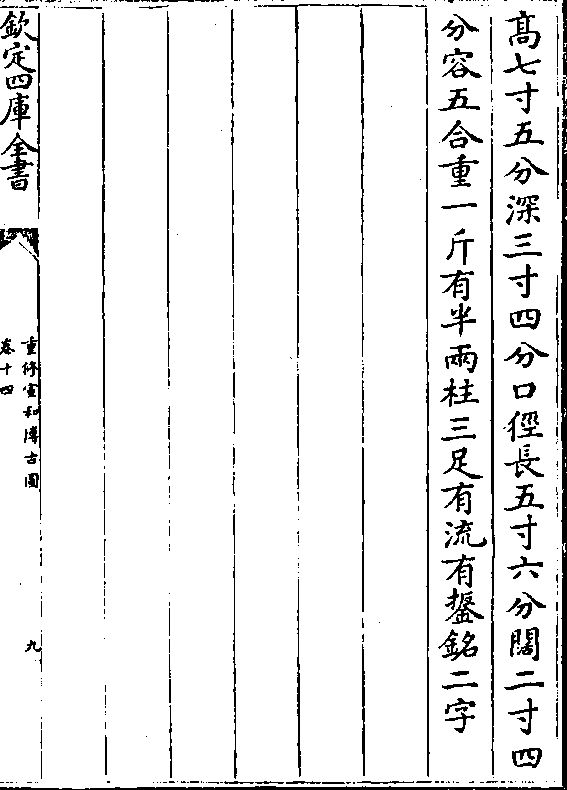 髙七寸五分深三寸四分口徑長五寸六分闊二寸四
分容五合重一斤有半兩柱三足有流有鋬銘二字
欽定四庫全書
重修宣和博古圖
卷十四
九